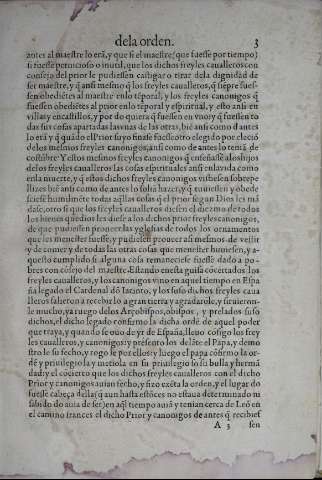 dela orden. 3
antes al maestre lo erã, y que si el maestre (que fuesse por tiempo)
si fuesse pernicioso o inutil, que los dichos freyles caualleros con
consejo del prior le pudiessen castigar o tirar dela dignidad de
ser maestre, y q̃ ansi mesmo q̃ los freyles caualleros, q̃ siẽpre fues-
sen obediẽtes al maestre enlo tẽporal, y los freyles canonigos q̃
fuessen obediẽtes al prior enlo tẽporal y espiritual, y esto ansi en
villas y en castillos, y por do quiera q̃ fuessen en vno y q̃ fuessen to
das sus cosas apartadas las vnas de las otras, biẽ ansi como d antes
lo erã y q̃ quãdo el Prior suyo finasse fuesse otro elegido por eleciõ
delos mesmos freyles canonigos, ansi como de antes lo tenia de
costũbre: Y estos mesmos freyles canonigos q̃ enseñassẽ alos hijos
delos freyles caualleros las cosas espirituales ansi enla vida como
enla muerte, y q̃ estos dichos freyles canonigos vistiessen sobrepe
llizes biẽ ansi como de antes lo solia hazer, y q̃ tuuiessen y obede
sciesse humilmẽte todas aq̃llas cosas q̃ el prior segun Dios les mã
dase, otro si que los freyles caualleros diessen el diezmo de todos
los bienes que dios les diesse alos dichos prior freyles canonigos,
de que pudiessen proueer las yglesias de todos los ornamentos
que les menester huuesse, y pudiessen proueer asi mesmos de vestir
y de comer y de todas las otras cosas que menester huuiessen, y a-
questo cumplido si alguna cosa remaneciese fuesse dado a po-
bres con cõsejo del maestre. Estando en esta guisa cõcertados los
freyles caualleros, y los canonigos vino en aquel tiempo en Espa
ña legado el Cardenal dõ Iacinto, y los suso dichos freyles caua
lleros salieron a recebirlo a gran tierra y agradarole, y siruieron-
le mucho, ya ruego delos Arçobispos, obispos, y prelados suso
dichos, el dicho legado confirmo la dicha ordẽ de aquel poder
que traya, y quando se ouo de yr de España, lleuo cõsigo los frey
les caualleros, y canonigos: y presento los delãte el Papa, y demo
stro le su fecho, y rogo le por ellos: y luego el papa cõfirmo la or-
dẽ y priuilegiola y metiola en su priuilegio so su bulla y hermã
dad: y el cõcierto que los dichos freyles caualleros con el dicho
Prior y canonigos auian fecho, y fizo exẽta la orden, y el lugar do
fuesse cabeça della (q̃ aun hasta estõces no estaua determinado ni
sabido do auia de ser) en aq̃l tiempo auia y tenian cerca de Leõ en
el camino frances el dicho Prior y canonigos de antes q̃ recibies
A 3 sen